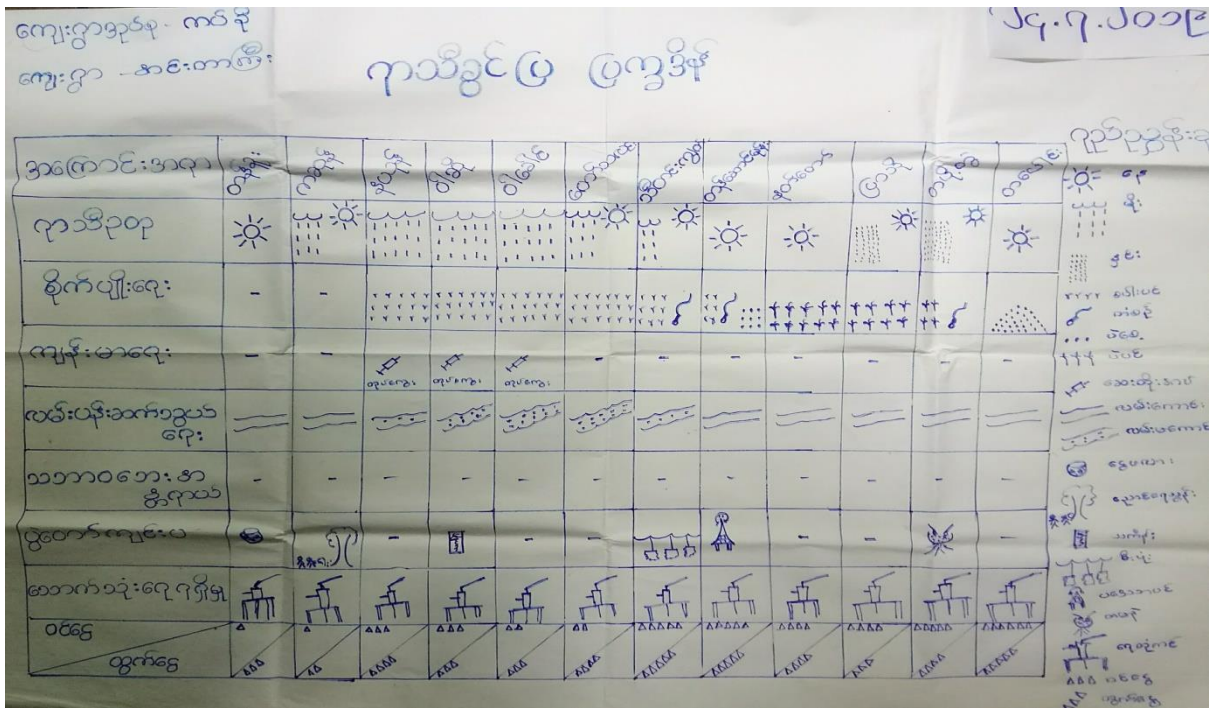 ကျေးရွာအုပ်စု - ကပ်နီ
ကျေးရွာ - အင်းတာကြီး
၂၄.၇.၂၀၁၉
ရာသီခွင်ပြ ပြက္ခဒိန်
အကြောင်းအရာ တန်ခူး ကဆုန် နယုန် ဝါဆို ဝါခေါင် တော်သလင်း သီတင်းကျွတ် တန်ဆောင်မုန်း နတ်တော် ပြာသို တပို့တွဲ တပေါင်း
ရာသီဥတု
စိုက်ပျိုးရေး - -
ကျန်းမာရေး - - တုပ်ကွေး တုပ်ကွေး တုပ်ကွေး - - - - - - -
လမ်းပန်းဆက်သွယ်
ရေး
သဘာဝဘေးအ
န္တရာယ် - - - - - - - - - - - -
ပွဲတော်ကျင်းပ - - - - - -
သောက်သုံးရေရရှိမှု
ဝင်ငွေ
ထွက်ငွေ
ရည်ညွှန်း
နေ
မိုး
နှင်း
စပါးပင်
တံစဉ်
ပဲစေ့
ပဲပင်
ဆေးထိုးအပ်
လမ်းကောင်း
လမ်းမကောင်း
ငွေဖလား
ညောင်ရေသွန်း
သင်္ကန်း
မီးပုံး
ပဒေသာပင်
ထမနဲ
ရေတုံကင်
ဝင်ငွေ
ထွက်ငွေ